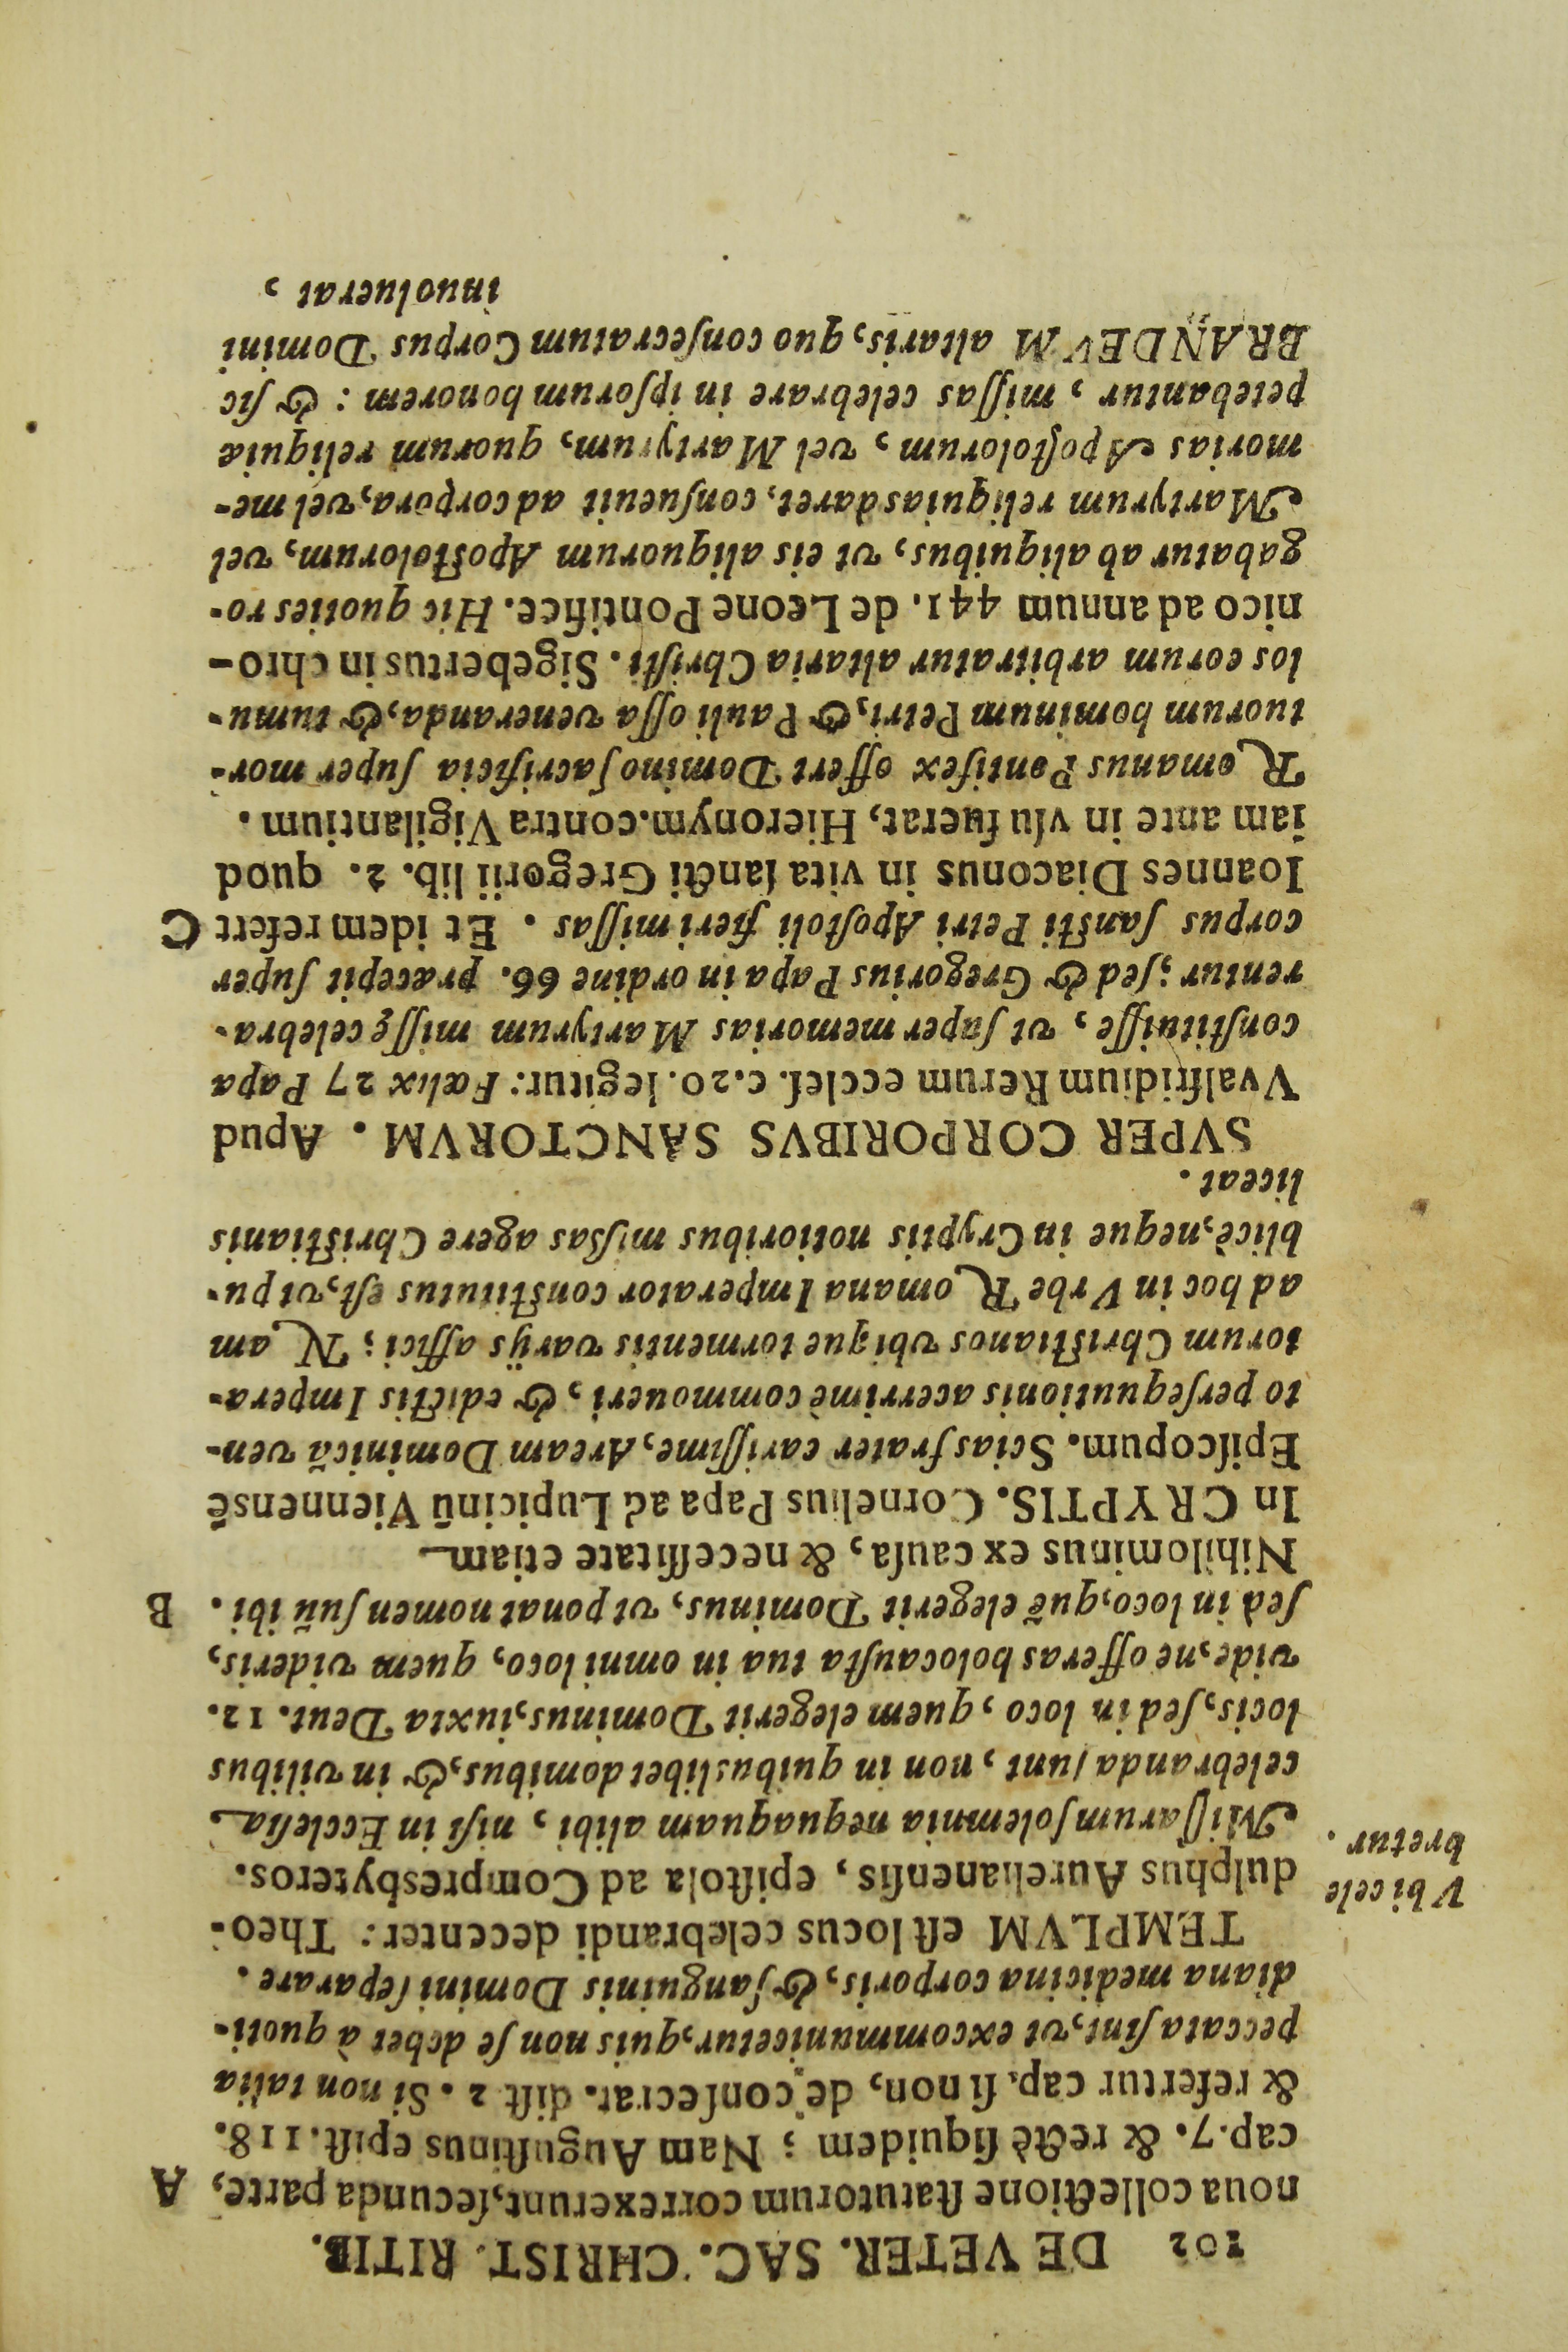 102 DE VETER. SAC. CHRIST. RITIB.
noua collectione statutorum correxerunt, secunda parte, A
cap. 7. & rectè siquidem; Nam Augustinus epist. 118.
& refertur cap. si non, de consecrat. dist 2. Si non talia
peccata sint, vt excommunicetur, quis non se debet à quoti-
diana medicina corporis, & sanguinis Domini separare.
TEMPLVM est locus celebrandi decenter: Theo-
Vbi cele
bretur.
dulphus Aurelianensis, epistola ad Compresbyteros.
Missarum solemnia nequaquam alibi, nisi in Ecclesia
celebranda sunt, non in quibuslibet domibus, & in vilibus
locis, sed in loco, quem elegerit Dominus, iuxta Deut. 12.
vide, ne offeras holocausta tua in omni loco, quem videris,
sed in loco, quẽ elegerit Dominus, vt ponat nomen suũ ibi. B
Nihilominus ex causa, & neccessitate etiam
In CRYPTIS. Cornelius Papa ad Lupicinũ Viennensẽ
Episcopum. Scias frater carissime, Aream Dominicã ven-
to persequutionis acerrimè commoueri, & edictis Impera-
torum Christianos vbique tormentis varijs affici; Nam
ad hoc in Vrbe Romana Imperator constitutus est, vt pu-
blicè, neque in Cryptis notioribus missas agere Christianis
liceat.
SVPER CORPORIBVS SANCTORVM. Apud
Vvalfridium Rerum ecclef. c. 20. legitur: Fœlix 27 Papa
constituisse, vt super memorias Martyrum missę celebra-
rentur; sed & Gregorius Papa in ordine 66. præcepit super
corpus sancti Petri Apostoli fieri missas. Et idem refert C
Ioannes Diaconus in vita sancti Gregorii lib. 2. quod
iam ante in vsu fuerat, Hieronym. contra Vigilantium.
Romanus Pontifex offert Domino sacrificia super mor-
tuorum hominum Petri, & Pauli ossa veneranda, & tumu-
los eorum arbitratur altaria Christi. Sigebertus in chro-
nico ad annum 441. de Leone Pontifice. Hic quoties ro-
gabatur ab aliquibus, vt eis aliquorum Apostolorum, vel
Martyrum reliquias daret, consueuit ad corpora, vel me-
morias Apostolorum, vel Martyrum, quorum reliquiæ
petebantur, missas celebrare in ipsorum honorem: & sic
BRANDEVM altaris, quo consecratum Corpus Domini
inuoluerat,